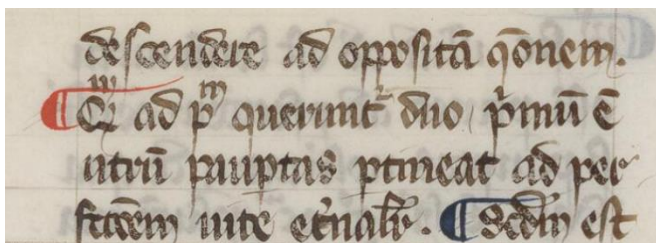 descendere ad opposită q̃onem.
¶ Qm̃ ad pm querunt᷑ duo p̾mũ ẽ
utrũ paup̱tas ptineat ad per
fcc̃oẽm uite et̾nalis. ¶ Scđm est